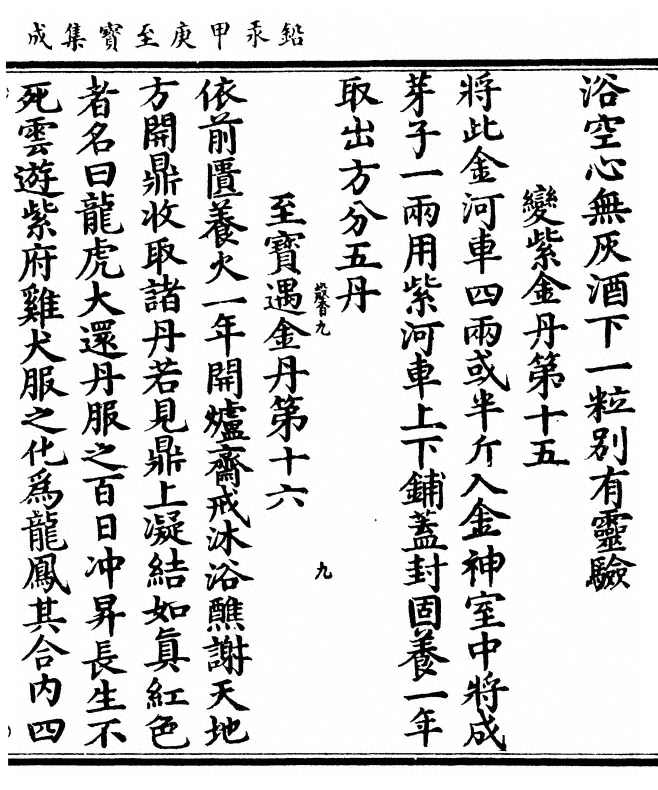 鉛汞甲庚至寶集成
浴空心無灰酒下一粒別有靈驗
變紫金丹第十五
將此金河車四兩或半斤入金神室中將成
芽子一兩用紫河車上下鋪蓋封固養一年
取出方分五丹
九
九
至寶遇金丹第十六
依前匱養火一年開爐齋戒沐浴醮謝天地
方開鼎收取諸丹若見鼎上凝結如眞紅色
者名曰龍虎大還丹服之百日冲昇長生不
死雲遊紫府雞犬服之化爲龍鳳其合內四